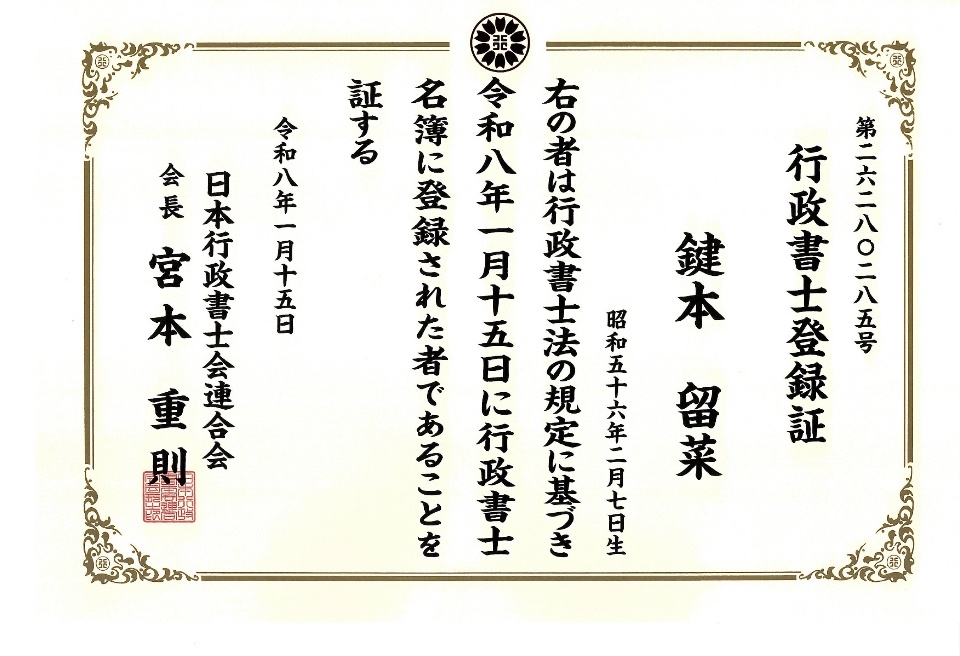 第二六二八〇二八五号
行政書士登録証
鍵本 留菜
昭和五十六年二月七日生
右の者は行政書士法の規定に基づき
令和八年一月十五日に行政書士
名簿に登録された者であることを
証する
令和八年一月十五日
日本行政書士会連合会
会長 宮本 重則